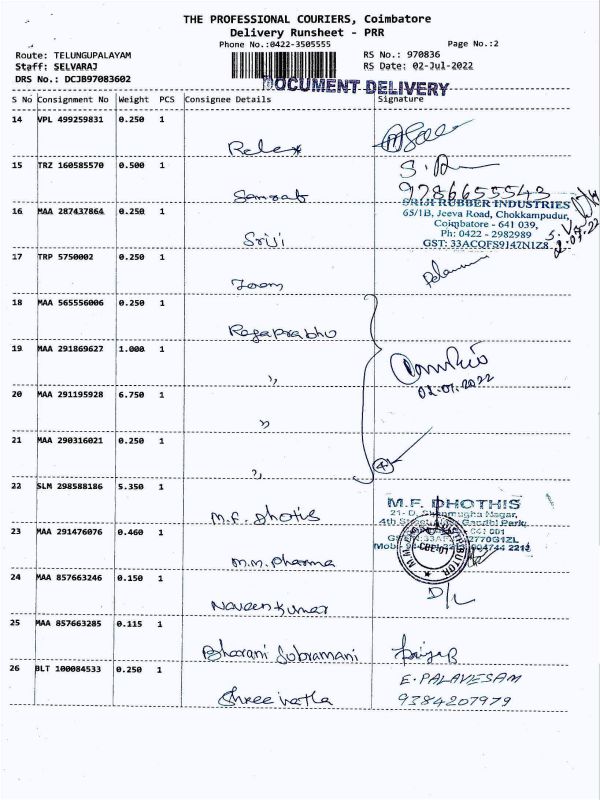 THE PROFESSIONAL COURIERS, Coimbatore
Delivery Runsheet - PRR
Phone No.:0422-3505555 Page No.:2
Route: TELUNGUPALAYAM RS No.: 970836
Staff: SELVARAJ RS Date: 02-Jul-2022
DRS No.: DCJB97083602
DOCUMENT DELIVERY
S No Consignment No Weight PCS Consignee Details Signature
14 VPL 499259831 0.250 1
Relex
15 TRZ 160585570 0.500 1
9786655543
SRIJI RUBBER INDUSTRIES
65/1B, Jeeva Road, Chokkampudur,
Coimbatore - 641 039,
Ph: 0422 - 2982989
GST: 33ACQFS9147N1Z8
16 MAA 287437864 0.250 1
Sriji
17 TRP 5750002 0.250 1
Zoom
18 MAA 565556006 0.250 1
Rajaprabhu
19 MAA 291869627 1.000 1
,,
02.07.2022
20 MAA 291195928 6.750 1
,,
21 MAA 290316021 0.250 1
,,
4
22 SLM 298588186 5.350 1
M.F. Dhotis
M.F. DHOTHIS
23 MAA 291476076 0.460 1
M.M. Pharma
24 MAA 857663246 0.150 1
Naveen Kumar
D/L
25 MAA 857663285 0.115 1
Bharani Subramani
26 BLT 100084533 0.250 1
E. PALAVESAM
9384207979